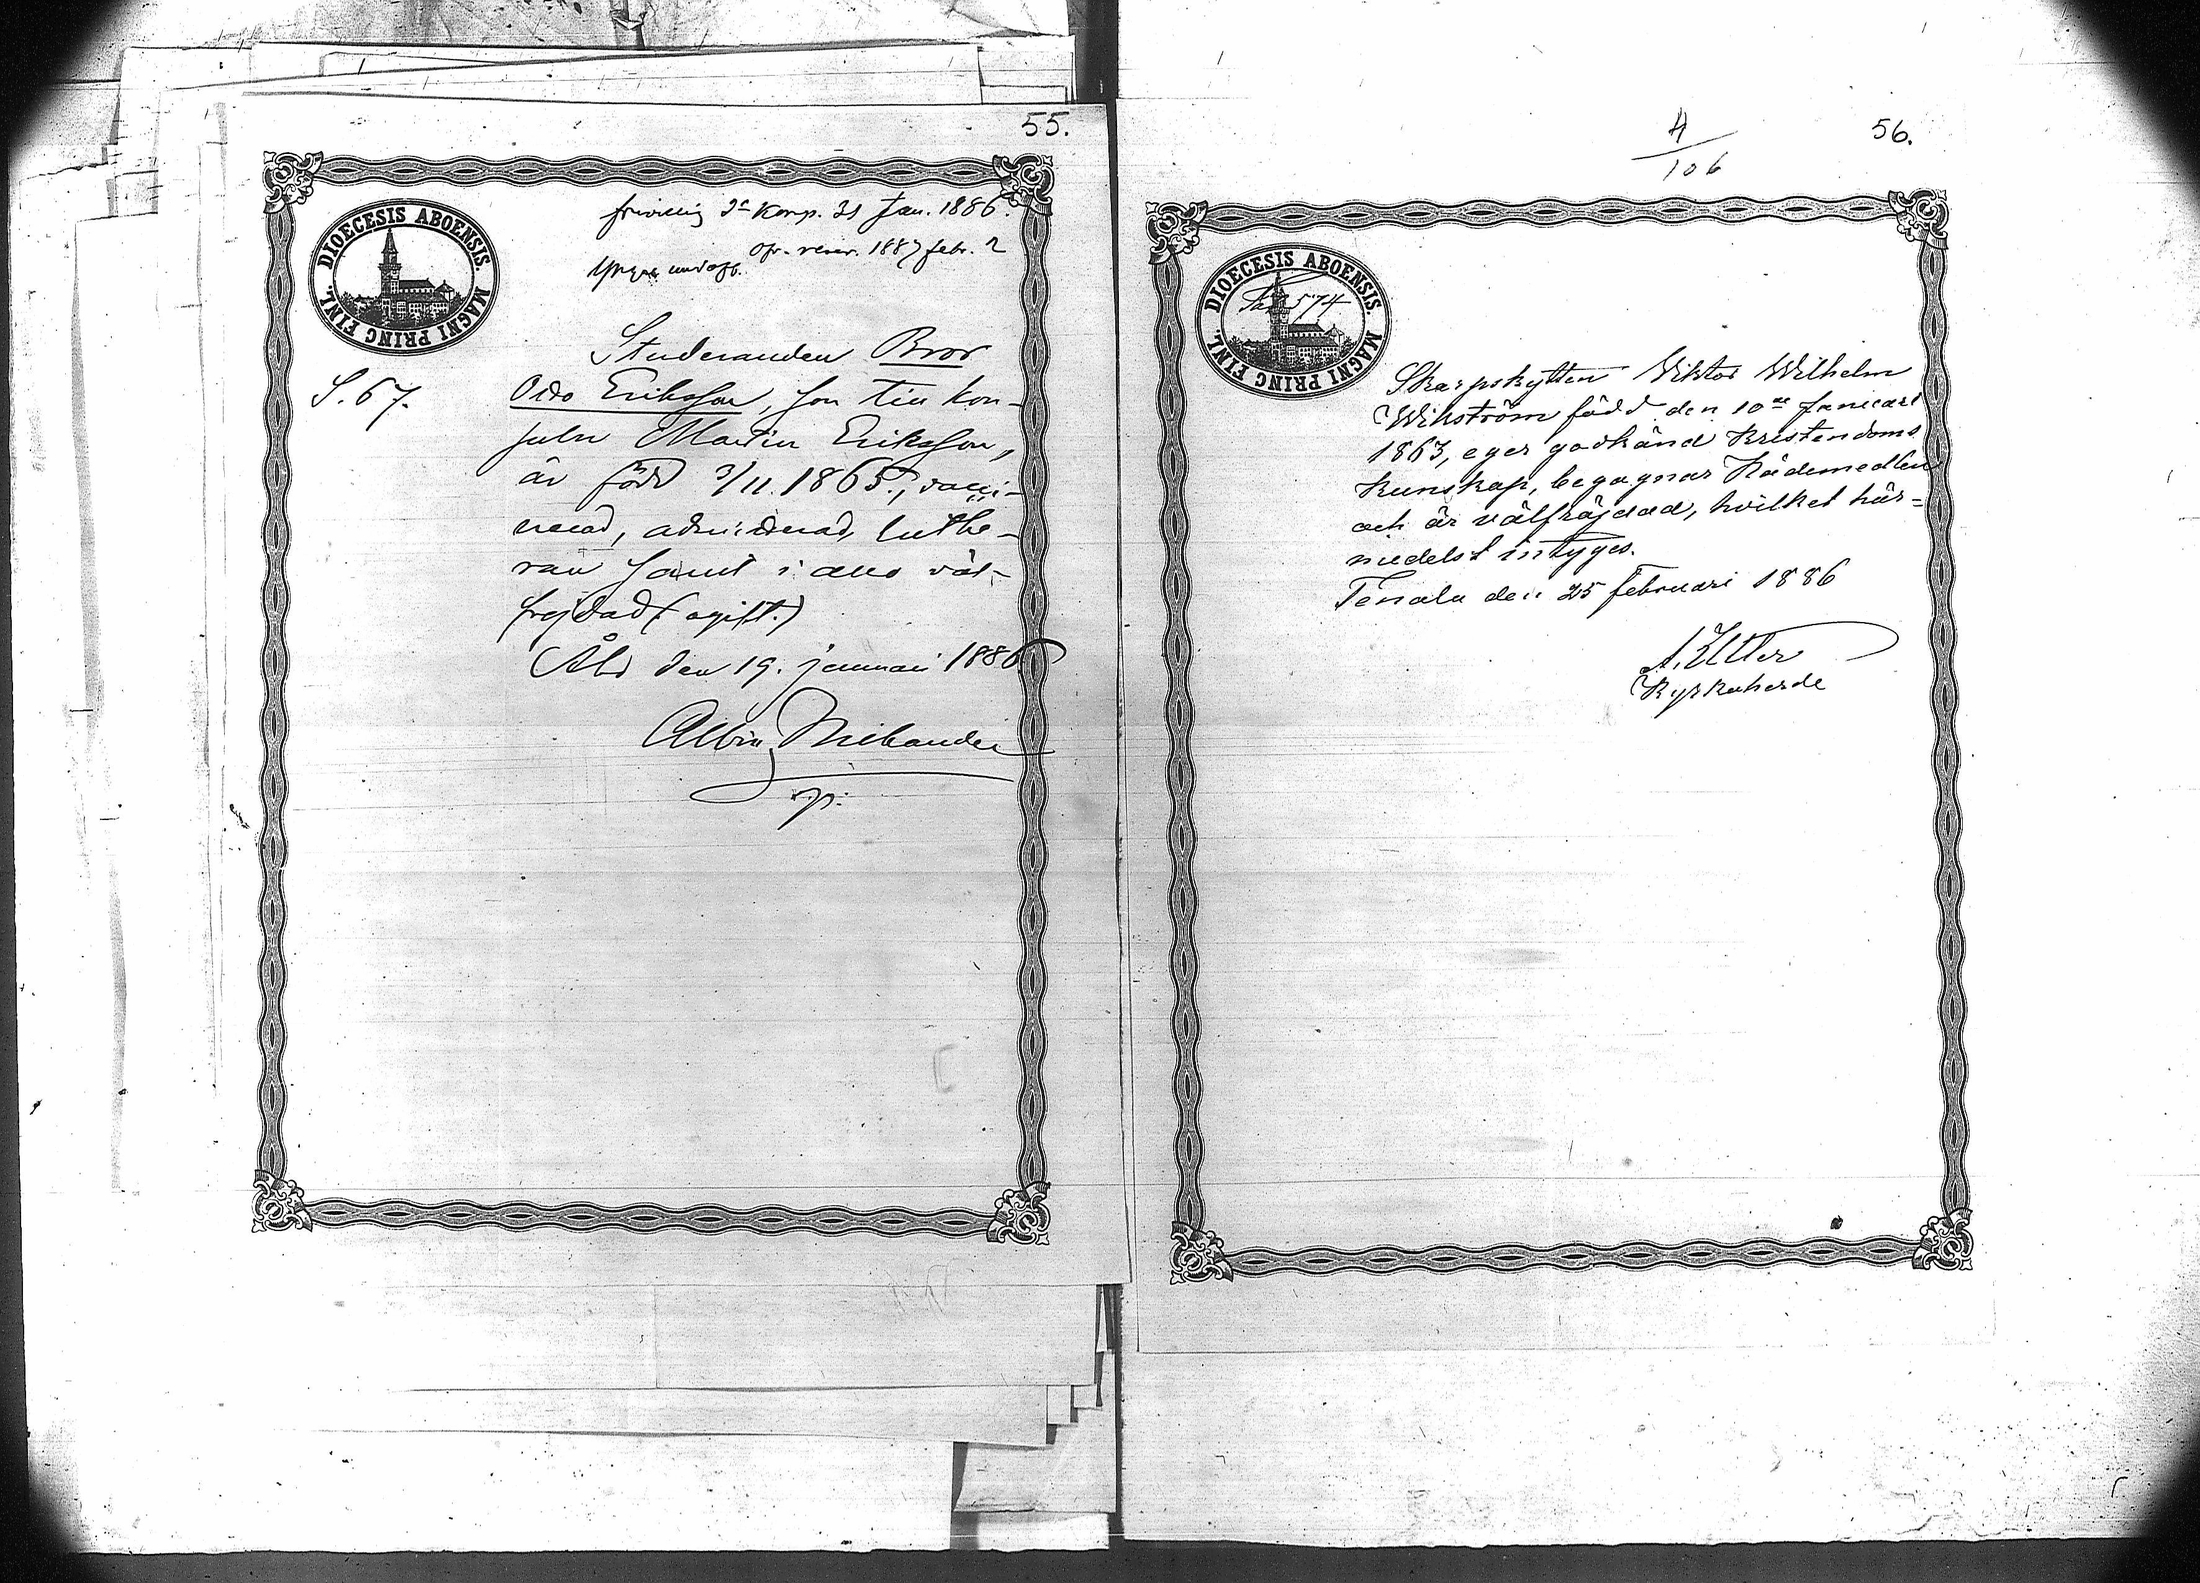 55.
frivillig 3e Komp. 31 Jan. 1886.
öfv. reserv. 1887 febr. 2
Yngre undoff.
DIOECESIS ABOENSIS.
MAGNI PRINC FINL.
S. 67.
Studeranden Bror
Odo Eriksson, son till kon-
suln Martin Eriksson,
är född 3/11. 1865, vacci-
nerad, admitterad, luthe-
ran samt i allo väl-
frejdad (ogift.)
Åbo den 19. januari 1886
Albin
4
106
56.
DIOECESIS ABOENSIS.
MAGNI PRINC FINL.
574
Skarpskytten Viktor Wilhelm
Wikström född den 10de Januari
1863, eger godkänd Kristendoms
kunskap, begagnar Nådemedlen
och är välfräjdad, hvilket här=
medelst intygas.
Tenala den 25 februari 1886
Kyrkoherde